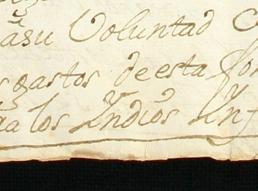 asu Voluntad C
gastos de esta
los Yndios Ynf